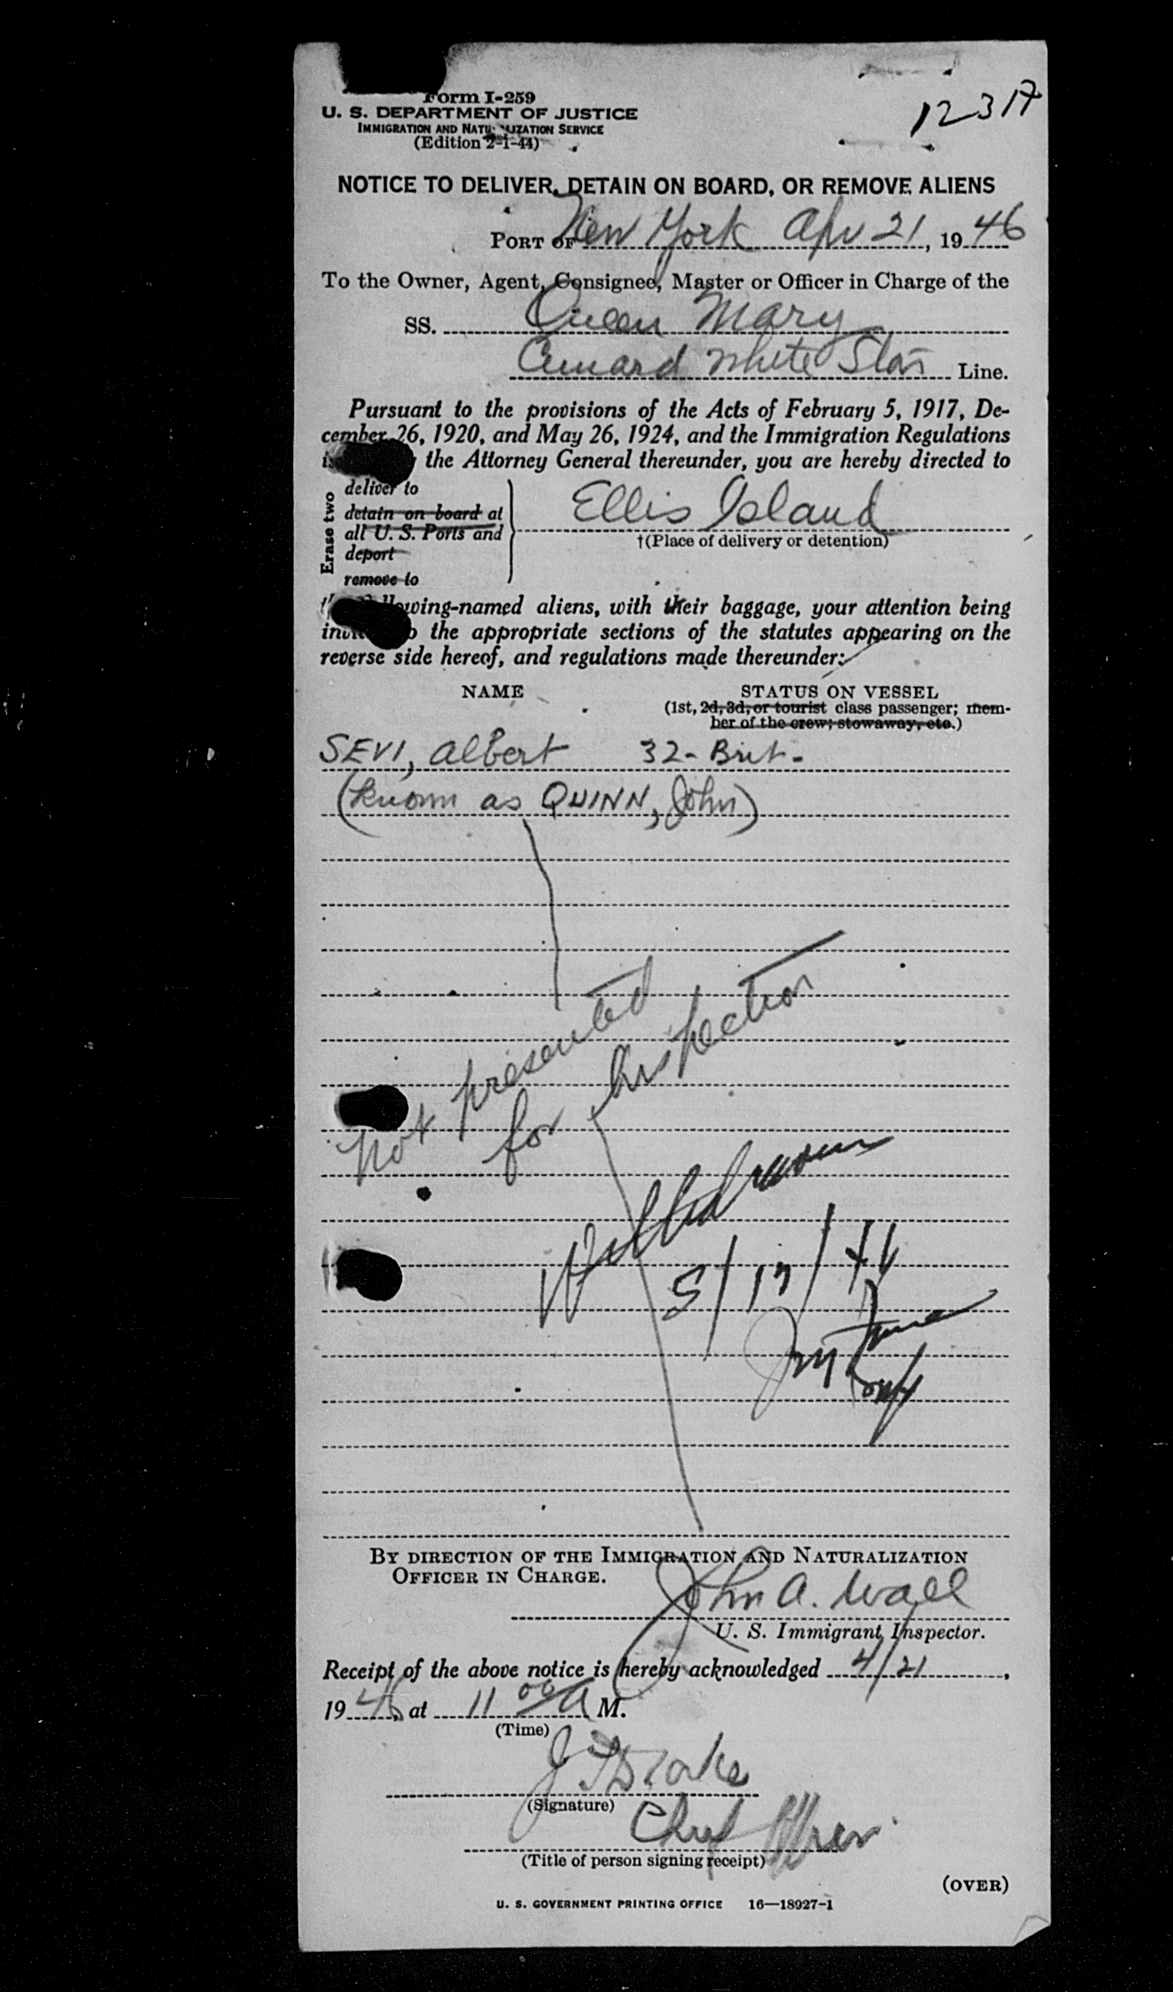 12317
Form I-259
U. S. DEPARTMENT OF JUSTICE
IMMIGRATION AND NATURALIZATION SERVICE
(Edition 2-1-44)
NOTICE TO DELIVER, DETAIN ON BOARD, OR REMOVE ALIENS
PORT OF New York Apr 21, 1946
To the Owner, Agent, Consignee, Master or Officer in Charge of the
SS. Queen Mary
Cunard White Star Line.
Pursuant to the provisions of the Acts of February 5, 1917, De-
cember 26, 1920, and May 26, 1924, and the Immigration Regulations
the Attorney General thereunder, you are hereby directed to
Erase two
deliver to
detain on board at
all U. S. Ports and
deport
remove to
Ellis Island
†(Place of delivery or detention)
following-named aliens, with their baggage, your attention being
the appropriate sections of the statutes appearing on the
reverse side hereof, and regulations made thereunder:
NAME
STATUS ON VESSEL
(1st, 2d, 3d, or tourist class passenger; mem-
ber of the crew; stowaway, etc.)
SEVI, Albert 32- Brit-
(known as QUINN, John)
not presented
for inspection
Withdrawn
5/17/46
BY DIRECTION OF THE IMMIGRATION AND NATURALIZATION
OFFICER IN CHARGE.
John A. Wall
U. S. Immigrant Inspector.
Receipt of the above notice is hereby acknowledged 4/21,
1946, at 11 00 A M.
(Time)
J
(Signature)
Chief Officer
(Title of person signing receipt)
(OVER)
U. S. GOVERNMENT PRINTING OFFICE 16—18927-1